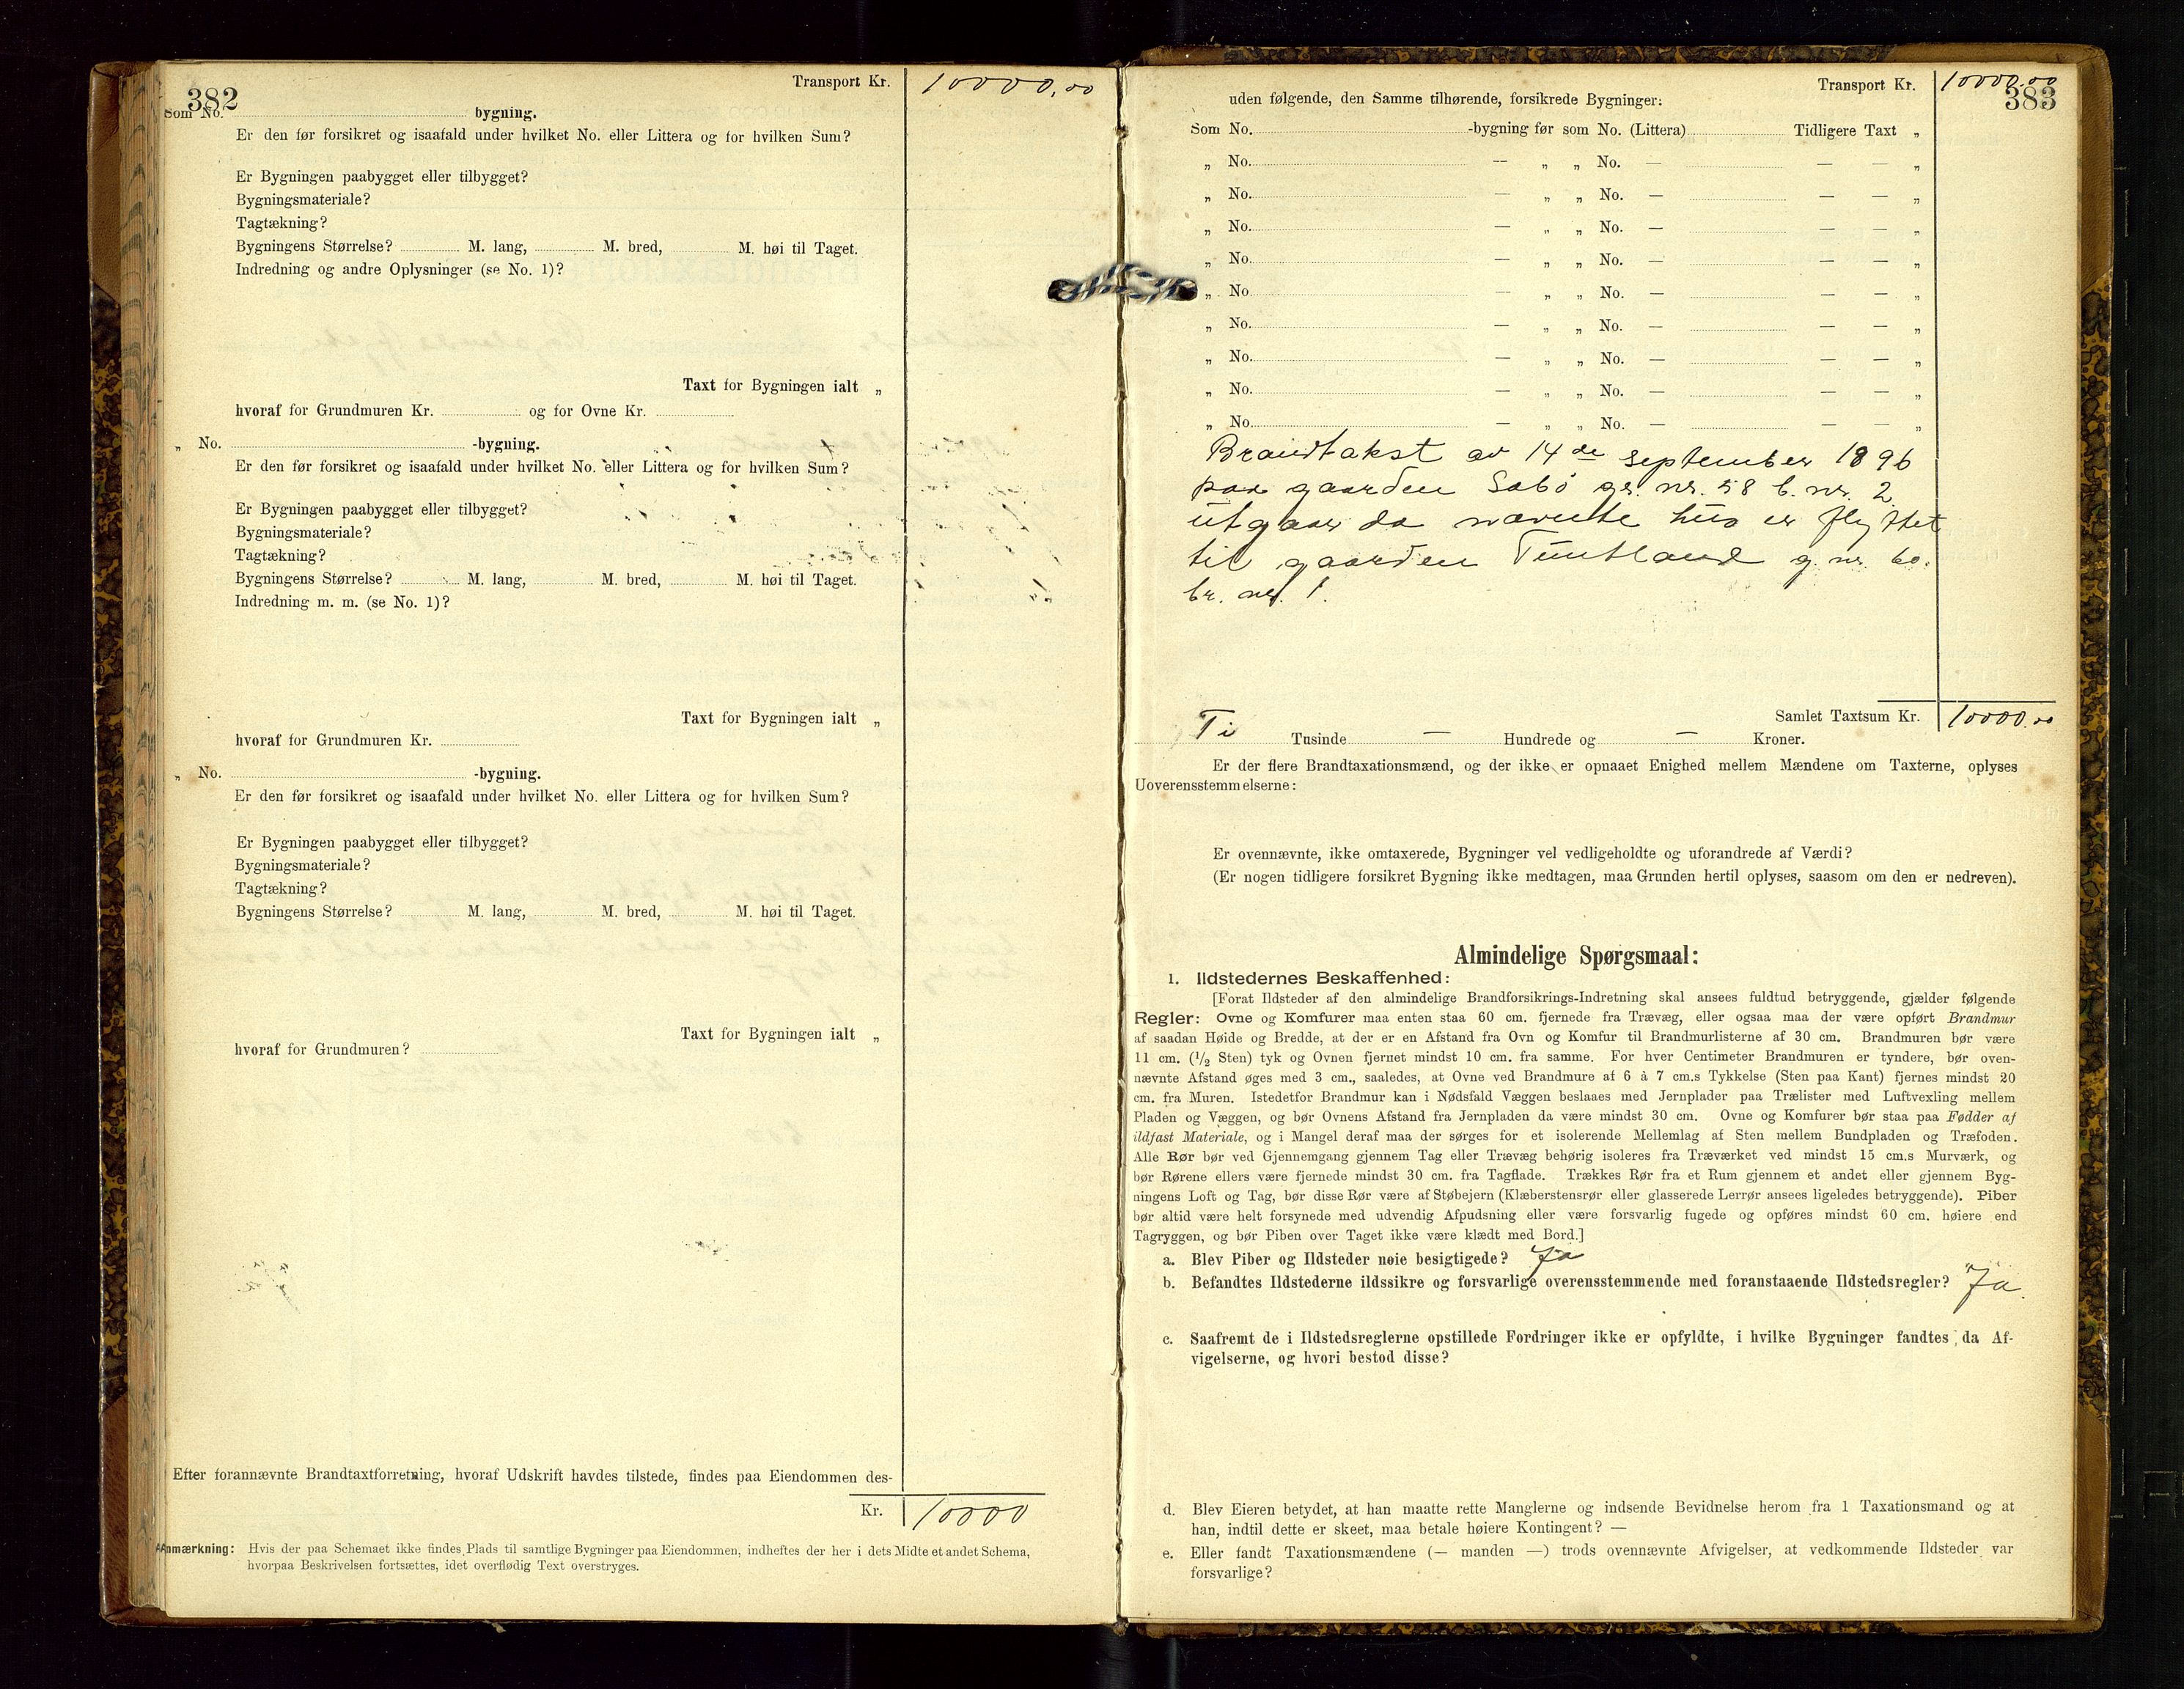 382
Transport Kr. 10000,00
Som No. bygning.
Er den før forsikret og isaafald under hvilket No. eller Littera og for hvilken Sum?
Er Bygningen paabygget eller tilbygget?
Bygningsmateriale?
Tagtækning?
Bygningens Størrelse? M. lang, M. bred, M. høi til Taget.
Indredning og andre Oplysninger (se No. 1)?
Taxt for Bygningen ialt „
hvoraf for Grundmuren Kr. og for Ovne Kr.
„ No. -bygning.
Er den før forsikret og isaafald under hvilket No. eller Littera og for hvilken Sum?
Er Bygningen paabygget eller tilbygget?
Bygningsmateriale?
Tagtækning?
Bygningens Størrelse? M. lang, M. bred, M. høi til Taget.
Indredning m. m. (se No. 1)?
Taxt for Bygningen ialt „
hvoraf for Grundmuren Kr.
„ No. -bygning.
Er den før forsikret og isaafald under hvilket No. eller Littera og for hvilken Sum?
Er Bygningen paabygget eller tilbygget?
Bygningsmateriale?
Tagtækning?
Bygningens Størrelse? M. lang, M. bred, M. høi til Taget.
Taxt for Bygningen ialt „
hvoraf for Grundmuren?
Efter forannævnte Brandtaxtforretning, hvoraf Udskrift havdes tilstede, findes paa Eiendommen des-
Kr. 10000
Anmærkning: Hvis der paa Schemaet ikke findes Plads til samtlige Bygninger paa Eiendommen, indheftes der her i dets Midte et andet Schema,
hvorpaa Beskrivelsen fortsættes, idet overflødig Text overstryges.
Transport Kr. 10000.00
383
uden følgende, den Samme tilhørende, forsikrede Bygninger:
Som No. -bygning før som No. (Littera) Tidligere Taxt „
„ No. — „ „ No. — — — „
„ No. — „ „ No. — — — „
„ No. — „ „ No. — — — „
„ No. — „ „ No. — — — „
„ No. — „ „ No. — — — „
„ No. — „ „ No. — — — „
„ No. — „ „ No. — — — „
„ No. — „ „ No. — — — „
„ No. — „ „ No. — — — „
Brandtakst av 14de september 1896
paa gaarden Søbö gr. nr. 58 b. nr. 2
utgaar da nævnte hus er flyttet
til gaarden Tuntland g. nr. 60.
br. nr. 1.
Samlet Taxtsum Kr. 10000.00
Ti Tusinde — Hundrede og — Kroner.
Er der flere Brandtaxationsmænd, og der ikke er opnaaet Enighed mellem Mændene om Taxterne, oplyses
Uoverensstemmelserne:
Er ovennævnte, ikke omtaxerede, Bygninger vel vedligeholdte og uforandrede af Værdi?
(Er nogen tidligere forsikret Bygning ikke medtagen, maa Grunden hertil oplyses, saasom om den er nedreven).
Almindelige Spørgsmaal:
1. Ildstedernes Beskaffenhed:
[Forat Ildsteder af den almindelige Brandforsikrings-Indretning skal ansees fuldtud betryggende, gjælder følgende
Regler: Ovne og Komfurer maa enten staa 60 cm. fjernede fra Trævæg, eller ogsaa maa der være opført Brandmur
af saadan Høide og Bredde, at der er en Afstand fra Ovn og Komfur til Brandmurlisterne af 30 cm. Brandmuren bør være
11 cm. (1/2 Sten) tyk og Ovnen fjernet mindst 10 cm. fra samme. For hver Centimeter Brandmuren er tyndere, bør oven-
nævnte Afstand øges med 3 cm., saaledes, at Ovne ved Brandmure af 6 à 7 cm.s Tykkelse (Sten paa Kant) fjernes mindst 20
cm. fra Muren. Istedetfor Brandmur kan i Nødsfald Væggen beslaaes med Jernplader paa Trælister med Luftvexling mellem
Pladen og Væggen, og bør Ovnens Afstand fra Jernpladen da være mindst 30 cm. Ovne og Komfurer bør staa paa Fødder af
ildfast Materiale, og i Mangel deraf maa der sørges for et isolerende Mellemlag af Sten mellem Bundpladen og Træfoden.
Alle Rør bør ved Gjennemgang gjennem Tag eller Trævæg behørig isoleres fra Træværket ved mindst 15 cm.s Murværk, og
bør Rørene ellers være fjernede mindst 30 cm. fra Tagflade. Trækkes Rør fra et Rum gjennem et andet eller gjennem Byg-
ningens Loft og Tag, bør disse Rør være af Støbejern (Klæberstensrør eller glasserede Lerrør ansees ligeledes betryggende). Piber
bør altid være helt forsynede med udvendig Afpudsning eller være forsvarlig fugede og opføres mindst 60 cm. høiere end
Tagryggen, og bør Piben over Taget ikke være klædt med Bord.]
a. Blev Piber og Ildsteder nøie besigtigede? Ja
b. Befandtes Ildstederne ildssikre og forsvarlige overensstemmende med foranstaaende Ildstedsregler? Ja.
c. Saafremt de i Ildstedsreglerne opstillede Fordringer ikke er opfyldte, i hvilke Bygninger fandtes da Af-
vigelserne, og hvori bestod disse?
d. Blev Eieren betydet, at han maatte rette Manglerne og indsende Bevidnelse herom fra 1 Taxationsmand og at
han, indtil dette er skeet, maa betale høiere Kontingent? —
e. Eller fandt Taxationsmændene (— manden —) trods ovennævnte Afvigelser, at vedkommende Ildsteder var
forsvarlige?